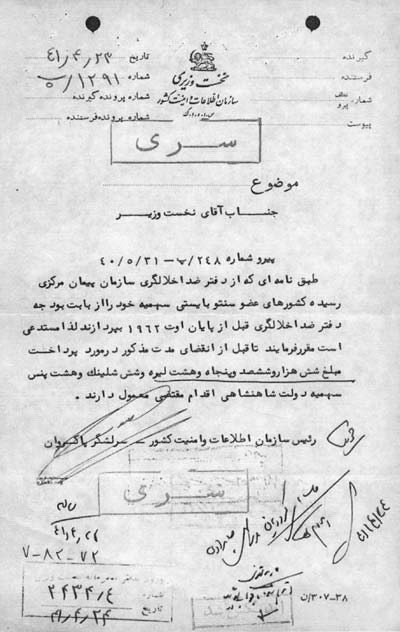 گیرنده
فرستنده
شماره عطف پیرو
پیوست
نخست وزیری
سازمان اطلاعات و امنیت کشور
س.ا.و.ا.ک
تاریخ ۴۱/۴/۲۳
شماره ۱۲۹۱
شماره پرونده گیرنده
شماره پرونده فرستنده
ســری
موضوع
جناب آقای نخست وزیر
پیرو شماره ۲۴۸/پ-۴۰/۵/۳۱
طبق نامه ای که از دفتر ضد اخلالگری سازمان پیمان مرکزی
رسیده کشورهای عضو سنتو بایستی سهمیه خود را از بابت بودجه
دفتر ضد اخلالگری قبل از پایان اوت ۱۹۶۲ بپردازند لذا مستدعی
است مقرر فرمایند تا قبل از انقضای مدت مذکور در مورد پرداخت
مبلغ شش هزار و ششصد و پنجاه و هشت لیره و شش شلینگ و هشت پنس
سهمیه دولت شاهنشاهی اقدام مقتضی معمول دارند .
رئیس سازمان اطلاعات و امنیت کشور – سرلشگر پاکروان
ســری
۷-۸۲-۷۲
شماره ۲۴۳۴/۴
تاریخ ۴۱/۴/۲۴
۳۰۷-۳۸/ن